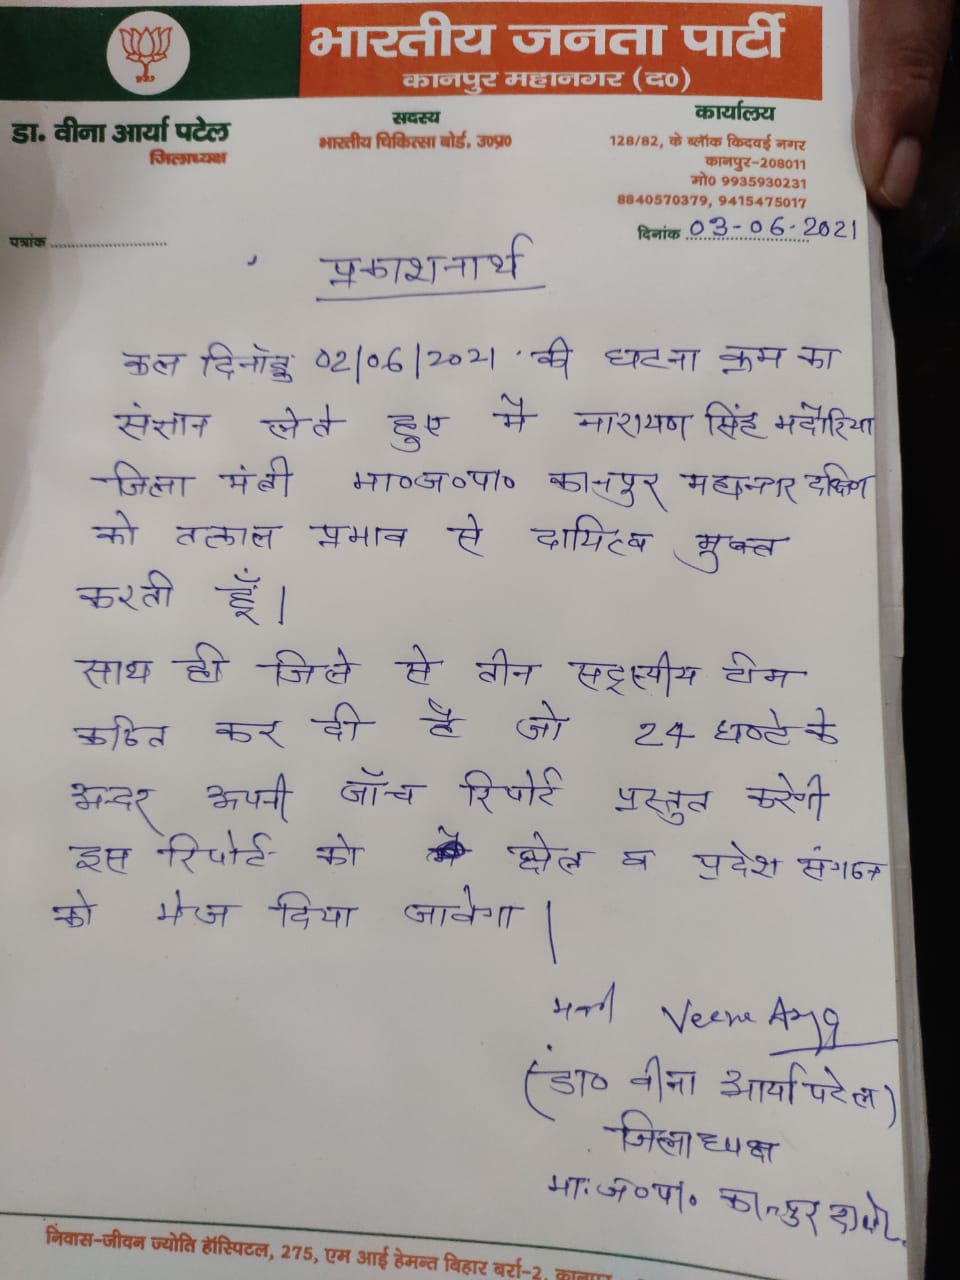 भारतीय जनता पार्टी
कानपुर महानगर (द०)
डा. वीना आर्या पटेल
जिलाध्यक्ष
सदस्य
भारतीय चिकित्सा बोर्ड, उ०प्र०
कार्यालय
128/82, के ब्लॉक किदवई नगर
कानपुर-208011
मो० 9935930231
8840570379, 9415475017
पत्रांक
दिनांक 03-06-2021
प्रकाशनार्थ
कल दिनाँक 02/06/2021 की घटना क्रम का
संज्ञान लेते हुए मै नारायण सिंह भदौरिया
जिला मंत्री भा०ज०पा० कानपुर महानगर दक्षिण
को तत्काल प्रभाव से दायित्व मुक्त
करती हूँ।
साथ ही जिले से तीन सदस्यीय टीम
कठित कर दी है जो 24 घण्टे के
अन्दर अपनी जाँच रिपोर्ट प्रस्तुत करेगी
इस रिपोर्ट को क्षेत्र व प्रदेश संगठन
को भेज दिया जावेगा।
Veena Arya
(डा० वीना आर्या पटेल)
जिलाध्यक्ष
भा.ज०पा. कानपुर
निवास-जीवन ज्योति हॉस्पिटल, 275, एम आई हेमन्त बिहार बर्रा-2, कानपुर